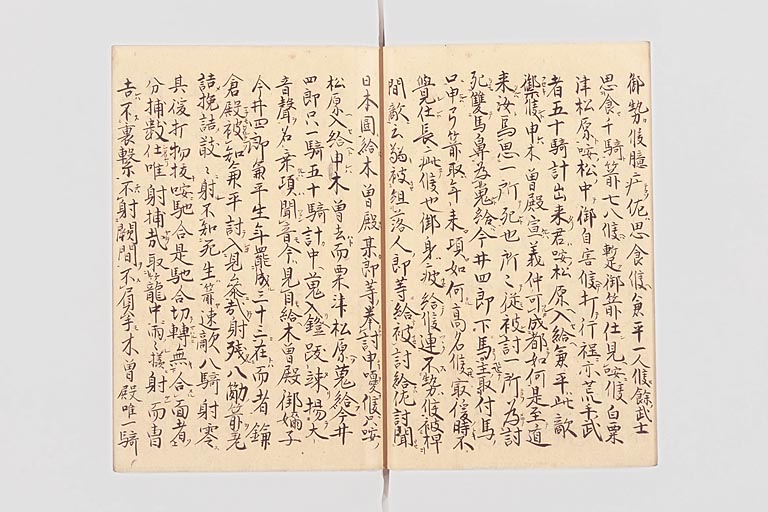 御勢候臆病侘思食候兼平一人候餘武士
思食千騎箭七八候暫御箭仕見候白粟
津松原松中御自害候打行程亦荒手武
者五十騎計出来君松原入給兼平此敵
禦候申木曽殿宣義仲可成都如何是至迄
来汝思一所死也所々従被討一所為討
死雙馬鼻蒐給今井四郎下馬主取付馬
口申弓箭取年来項如何高名候最後時不
覺仕長疵候也御身疲給候連不勢候被押
間敵云被組落人郎等給被討給侘討聞
日本國給木曽殿某郎等奉討申候只
松原入給申木曽去而粟津松原蒐給今井
四郎只一騎五十騎計中蒐入鐙踏揚大
音聲名乗項聞音今見自給木曽殿御乳子
今井四郎兼平生年罷成三十三在而者鎌
倉殿被知兼平討入見参射残八箭差
詰挽詰散々射不知死生箭速敵八騎射零
其後打物抜馳合是馳合切轉無合面者
分捕数仕唯射捕取籠中雨様射而冑
吉不裏繋不射闕間不負手木曽殿唯一騎